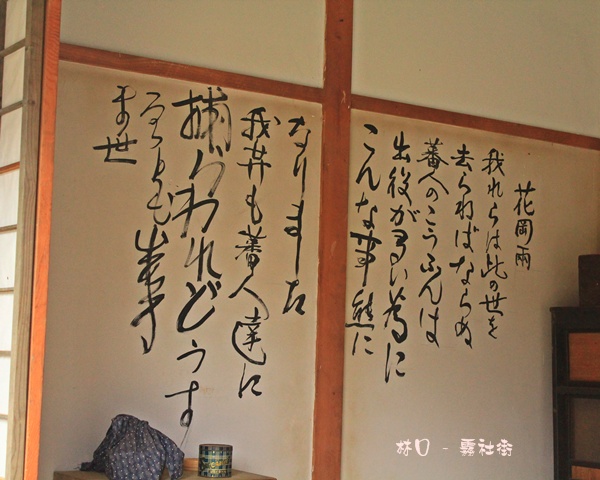 花岡兩
我れらは此の世を
去らねばならぬ
蕃人のこうふんは
出役が多い為に
こんな事態に
なりました
我等も蕃人達に
捕らわれどうす
ることも出来
ま世
林口 - 霧社街